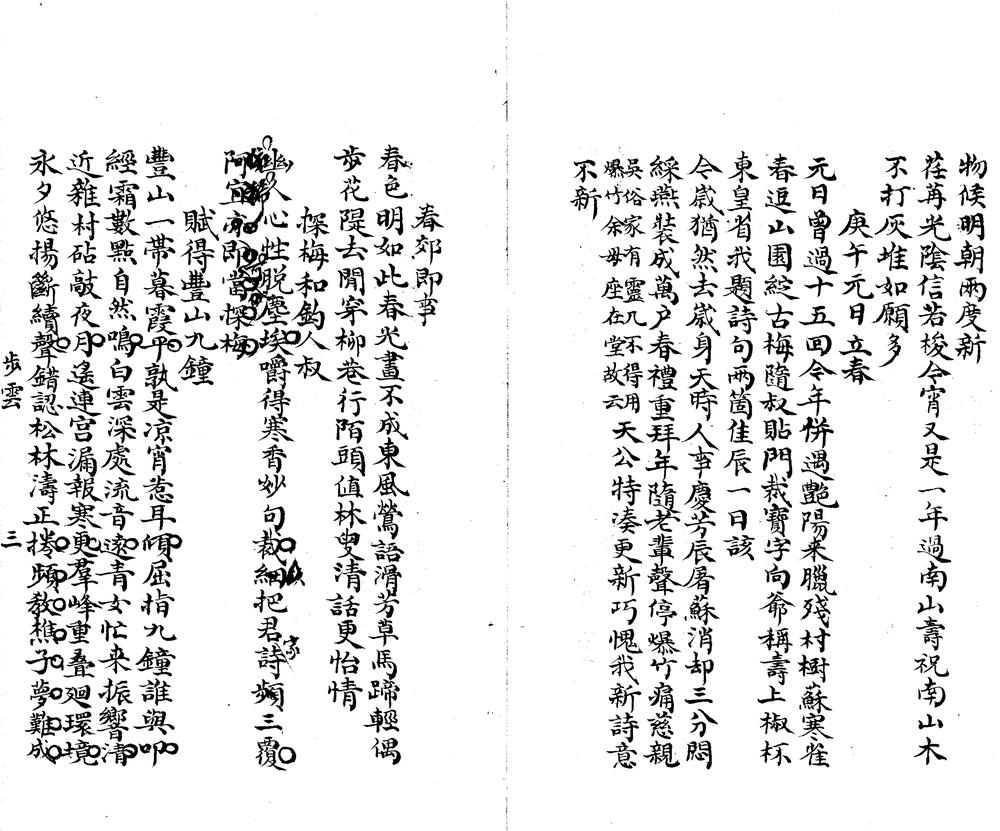 物候明朝兩度新
荏苒光陰信若梭今宵又是一年過南山壽祝南山木
不打灰堆如願多
庚午元日立春
元日曾過十五回今年併遇艷陽來臘殘村樹蘇寒雀
春逗山園綻古梅隨叔貼門裁寶字向爺稱壽上椒杯
東皇省我題詩句兩箇佳辰一日該
令歲猶然去歲身天時人事慶芳辰屠蘇消却三分悶
綵燕裝成萬户春禮重拜年隨老輩聲停爆竹痛慈親
吳俗家有靈几不得用
爆竹余母座在堂故云
天公特湊更新巧愧我新詩意
不新
春郊即事
春色明如此春光畫不成東風鶯語滑芳草馬蹄輕偶
步花隄去閒穿柳巷行陌頭值林叟清話更怡情
探梅和釣人叔
幽人心性脱塵埃嚼得寒香妙句裁細把君詩頻三覆
家
阿宜亦即當探梅
賦得豐山九鐘
豐山一帶暮霞平孰是凉宵惹耳傾屈指九鐘誰與叩
經霜數點自然鳴白雲深處流音遠青女忙来振響清
近雜村砧敲夜月遙連宫漏報寒更羣峰重叠廻環境
永夕悠揚斷續聲錯認松林濤正捲頻教樵子夢難成
步雲
三